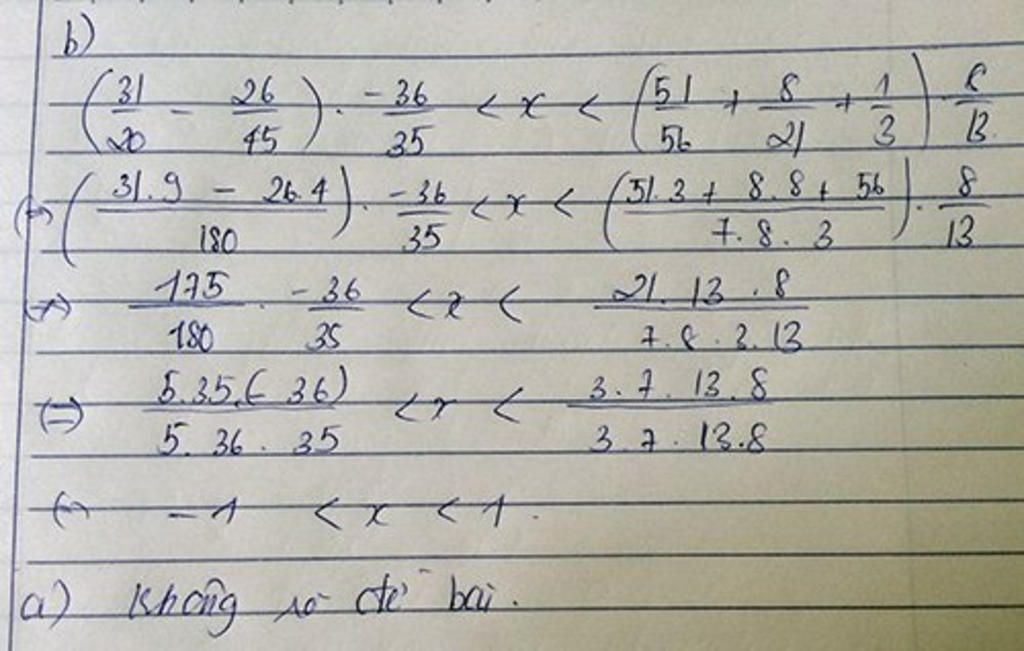 b)
(31/20 - 26/45) . -36/35 < x < (51/56 + 8/21 + 1/3) . 8/13
(=) (31.9 - 26.4 / 180) . -36/35 < x < (51.3 + 8.8 + 56 / 7.8.3) . 8/13
(=) 175/180 . -36/35 < x < 21.13.8 / 7.8.3.13
(=) 5.35.(-36) / 5.36.35 < x < 3.7.13.8 / 3.7.13.8
(=) -1 < x < 1.
a) Không rõ đề bài.